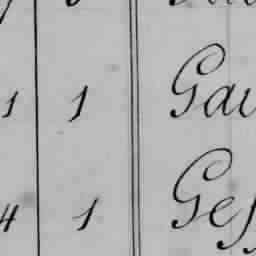 1 1 Gau
4 1 Gess